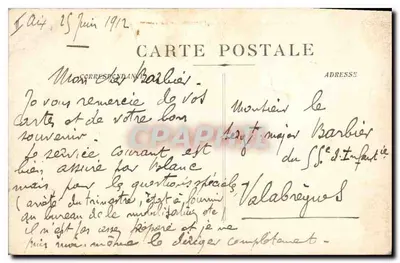 Aix, 25 Juin 1912
CARTE POSTALE
CORRESPONDANCE
ADRESSE
Mon cher Barbier.
Je vous remercie de vos
cartes et de votre bon
souvenir.
Le service courant est
bien assuré par Blanc
mais, pour les questions spéciales,
au bureau de la mobilisation etc
il n'est pas assez préparé et je ne
puis moi-même le diriger complètement.
Monsieur le
Sergt major Barbier
du 55e d'Infanterie
Valabrègues